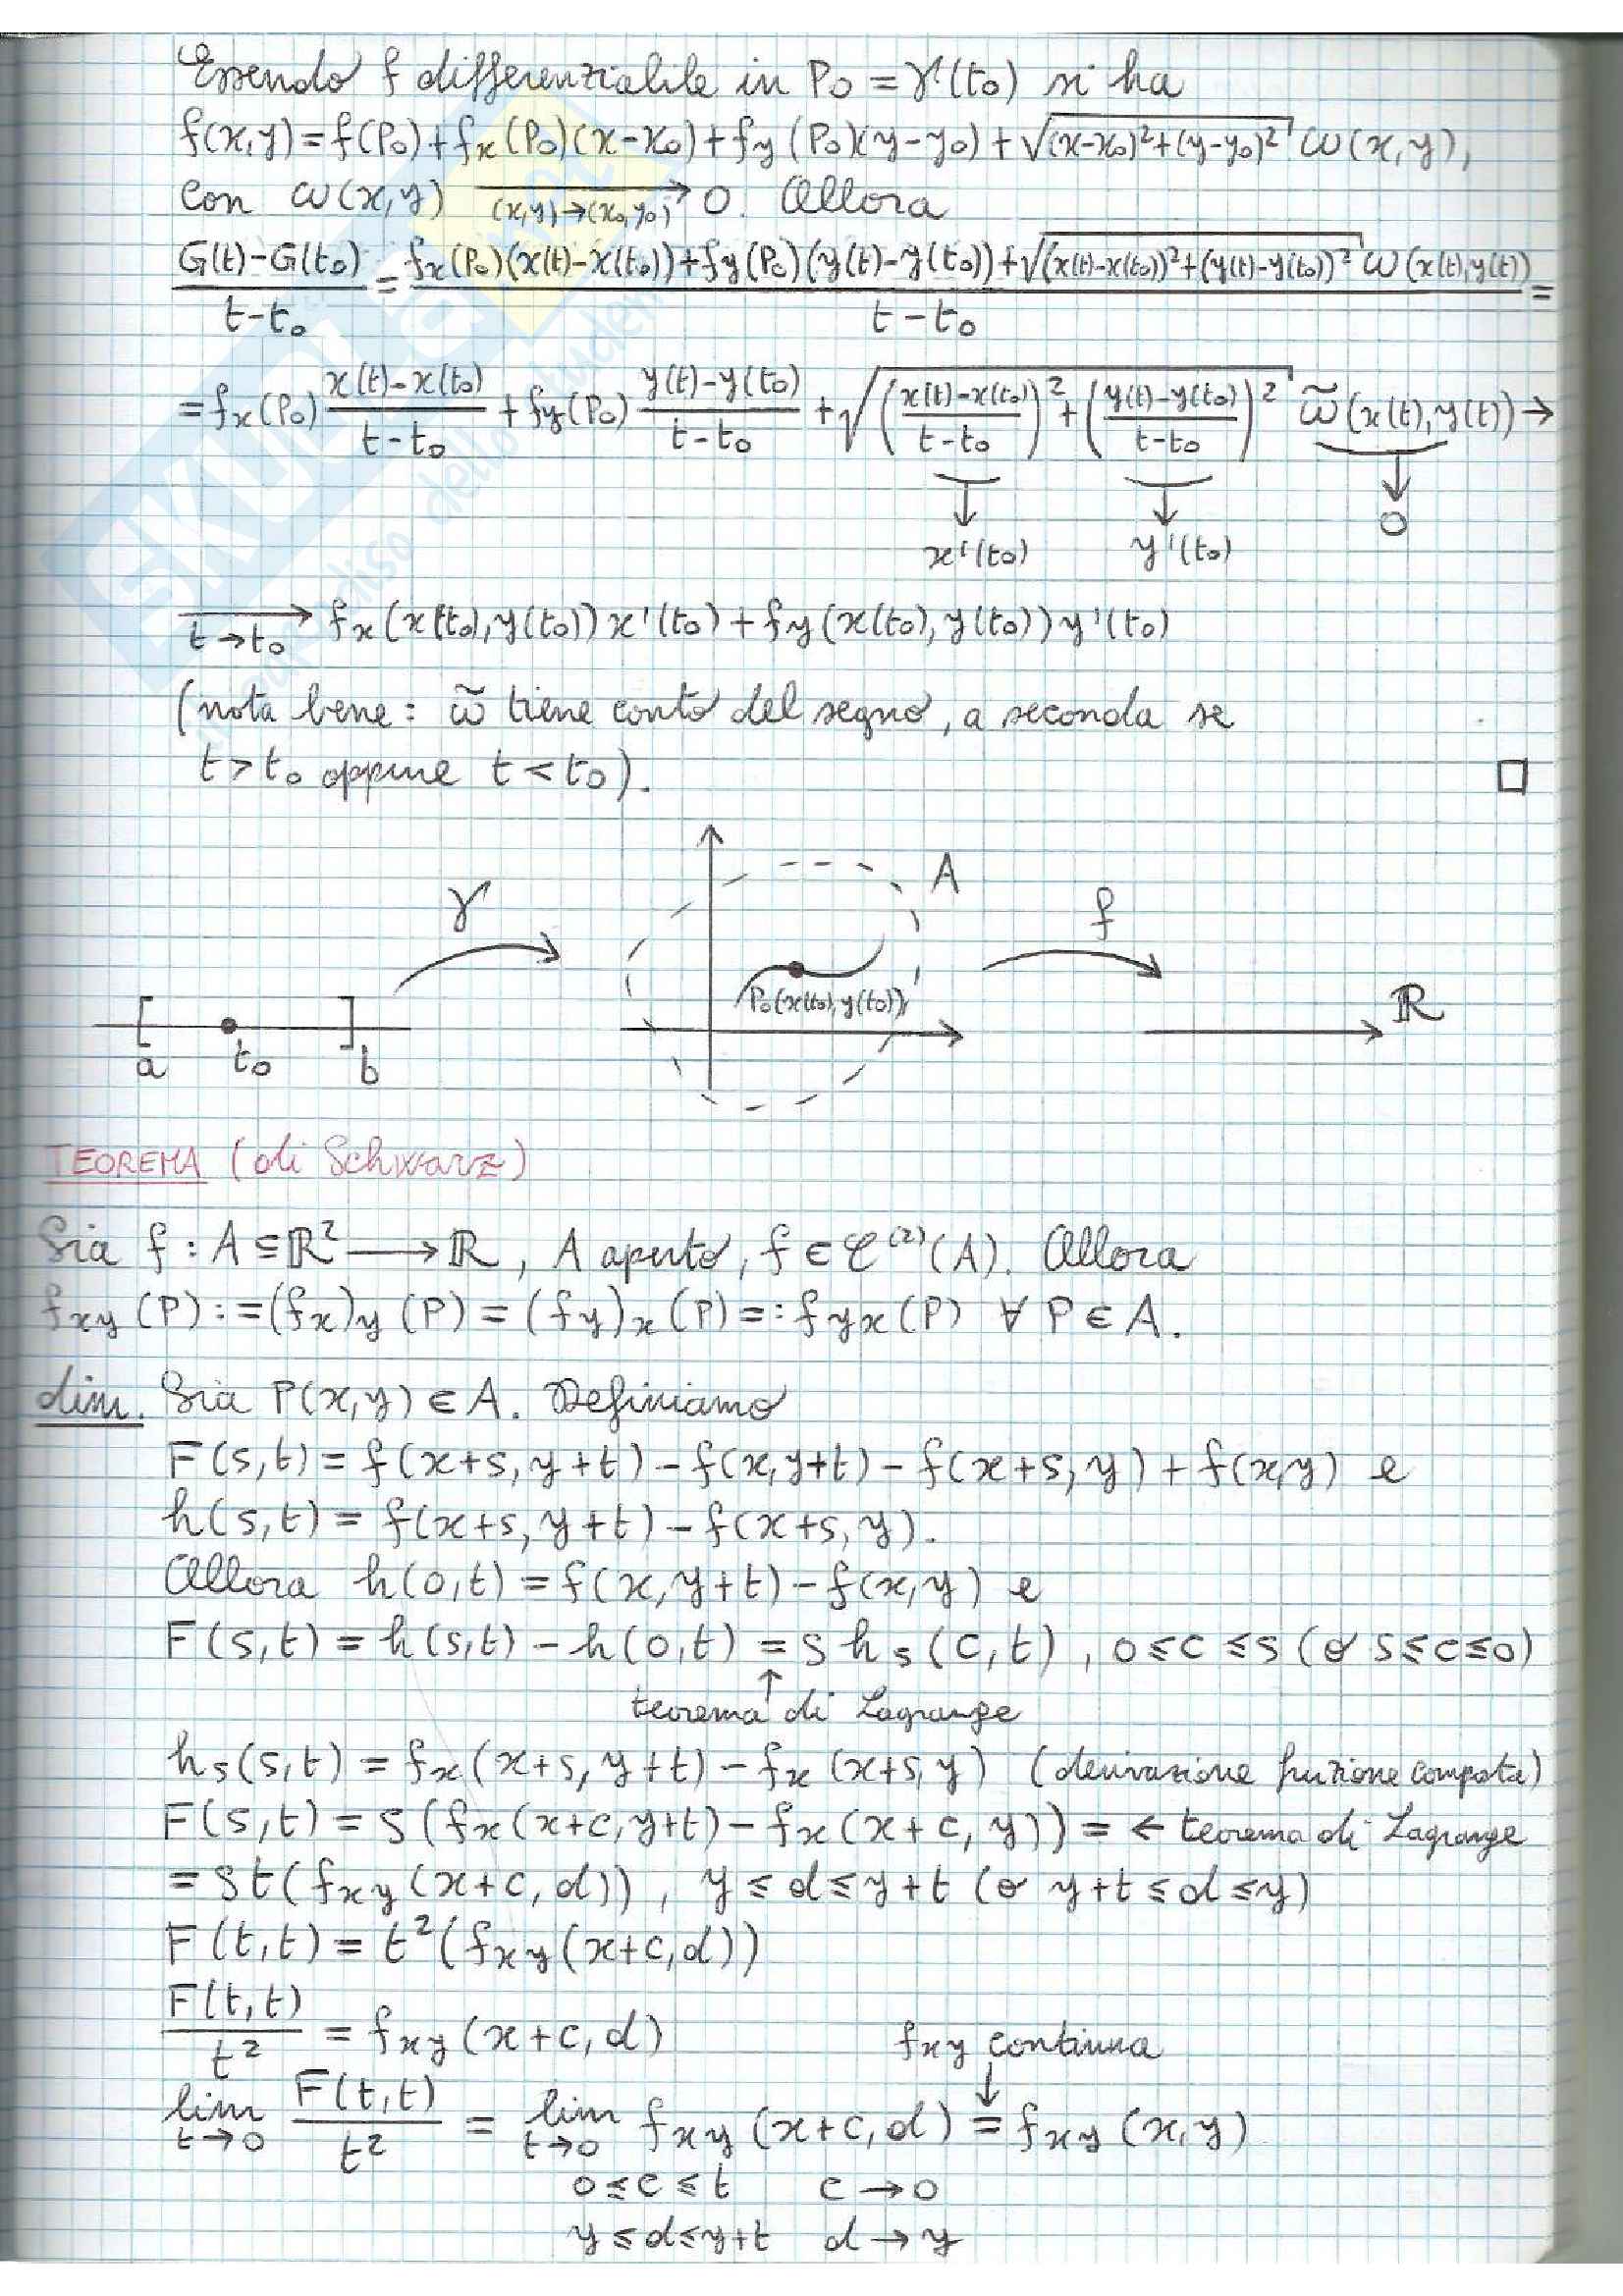 Essendo f differenziabile in P₀ = γ(t₀) si ha
f(x,y) = f(P₀) + fₓ(P₀)(x-x₀) + f_y(P₀)(y-y₀) + √((x-x₀)²+(y-y₀)²) ω(x,y),
con ω(x,y) → 0. Allora
(x,y)→(x₀,y₀)
(G(t)-G(t₀))/(t-t₀) = (fₓ(P₀)(x(t)-x(t₀)) + f_y(P₀)(y(t)-y(t₀)) + √((x(t)-x(t₀))²+(y(t)-y(t₀))²) ω(x(t),y(t)))/(t-t₀) =
= fₓ(P₀) (x(t)-x(t₀))/(t-t₀) + f_y(P₀) (y(t)-y(t₀))/(t-t₀) + √(((x(t)-x(t₀))/(t-t₀))² + ((y(t)-y(t₀))/(t-t₀))²) ω̃(x(t),y(t)) →
↓ ↓ ↓
x'(t₀) y'(t₀) 0
→ fₓ(x(t₀),y(t₀)) x'(t₀) + f_y(x(t₀),y(t₀)) y'(t₀)
t→t₀
(nota bene: ω̃ tiene conto del segno, a seconda se
t > t₀ oppure t < t₀). □
A
γ
f
P₀(x(t₀),y(t₀))
ℝ
[ ]
a t₀ b
TEOREMA (di Schwarz)
Sia f : A ⊆ ℝ² → ℝ, A aperto, f ∈ 𝒞⁽²⁾(A). Allora
f_xy(P) := (fₓ)_y(P) = (f_y)ₓ(P) =: f_yx(P) ∀ P ∈ A.
dim. Sia P(x,y) ∈ A. Definiamo
F(s,t) = f(x+s,y+t) - f(x,y+t) - f(x+s,y) + f(x,y) e
h(s,t) = f(x+s,y+t) - f(x+s,y).
Allora h(0,t) = f(x,y+t) - f(x,y) e
F(s,t) = h(s,t) - h(0,t) = s h_s(c,t), 0≤c≤s (o s≤c≤0)
↑
teorema di Lagrange
h_s(s,t) = fₓ(x+s,y+t) - fₓ(x+s,y) (derivazione funzione composta)
F(s,t) = s(fₓ(x+c,y+t) - fₓ(x+c,y)) = ← teorema di Lagrange
= st(f_xy(x+c,d)), y≤d≤y+t (o y+t≤d≤y)
F(t,t) = t²(f_xy(x+c,d))
F(t,t)/t² = f_xy(x+c,d)
f_xy continua
↓
lim t→0 F(t,t)/t² = lim t→0 f_xy(x+c,d) = f_xy(x,y)
0≤c≤t c→0
y≤d≤y+t d→y